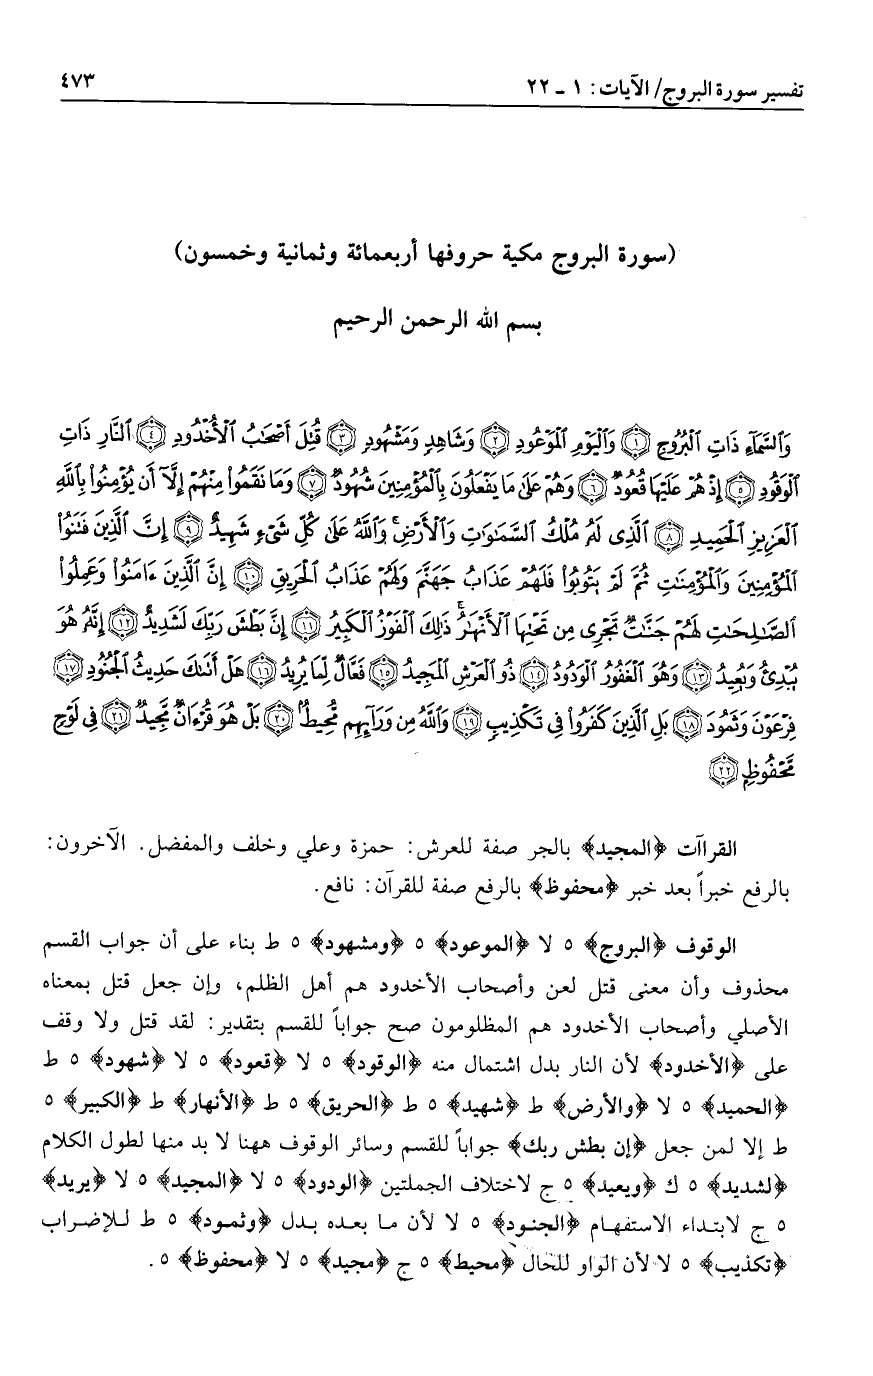 تفسير سورة البروج/ الآيات: ١ - ٢٢
٤٧٣
(سورة البروج مكية حروفها أربعمائة وثمانية وخمسون)
بسم الله الرحمن الرحيم
وَٱلسَّمَآءِ ذَاتِ ٱلۡبُرُوجِ ١ وَٱلۡيَوۡمِ ٱلۡمَوۡعُودِ ٢ وَشَاهِدٖ وَمَشۡهُودٖ ٣ قُتِلَ أَصۡحَٰبُ ٱلۡأُخۡدُودِ ٤ ٱلنَّارِ ذَاتِ
ٱلۡوَقُودِ ٥ إِذۡ هُمۡ عَلَيۡهَا قُعُودٞ ٦ وَهُمۡ عَلَىٰ مَا يَفۡعَلُونَ بِٱلۡمُؤۡمِنِينَ شُهُودٞ ٧ وَمَا نَقَمُواْ مِنۡهُمۡ إِلَّآ أَن يُؤۡمِنُواْ بِٱللَّهِ
ٱلۡعَزِيزِ ٱلۡحَمِيدِ ٨ ٱلَّذِي لَهُۥ مُلۡكُ ٱلسَّمَٰوَٰتِ وَٱلۡأَرۡضِۚ وَٱللَّهُ عَلَىٰ كُلِّ شَيۡءٖ شَهِيدٌ ٩ إِنَّ ٱلَّذِينَ فَتَنُواْ
ٱلۡمُؤۡمِنِينَ وَٱلۡمُؤۡمِنَٰتِ ثُمَّ لَمۡ يَتُوبُواْ فَلَهُمۡ عَذَابُ جَهَنَّمَ وَلَهُمۡ عَذَابُ ٱلۡحَرِيقِ ١٠ إِنَّ ٱلَّذِينَ ءَامَنُواْ وَعَمِلُواْ
ٱلصَّٰلِحَٰتِ لَهُمۡ جَنَّٰتٞ تَجۡرِي مِن تَحۡتِهَا ٱلۡأَنۡهَٰرُۚ ذَٰلِكَ ٱلۡفَوۡزُ ٱلۡكَبِيرُ ١١ إِنَّ بَطۡشَ رَبِّكَ لَشَدِيدٌ ١٢ إِنَّهُۥ هُوَ
يُبۡدِئُ وَيُعِيدُ ١٣ وَهُوَ ٱلۡغَفُورُ ٱلۡوَدُودُ ١٤ ذُو ٱلۡعَرۡشِ ٱلۡمَجِيدُ ١٥ فَعَّالٞ لِّمَا يُرِيدُ ١٦ هَلۡ أَتَىٰكَ حَدِيثُ ٱلۡجُنُودِ ١٧
فِرۡعَوۡنَ وَثَمُودَ ١٨ بَلِ ٱلَّذِينَ كَفَرُواْ فِي تَكۡذِيبٖ ١٩ وَٱللَّهُ مِن وَرَآئِهِم مُّحِيطُۢ ٢٠ بَلۡ هُوَ قُرۡءَانٞ مَّجِيدٞ ٢١ فِي لَوۡحٖ
مَّحۡفُوظِۭ ٢٢
القراآت ﴿المجيد﴾ بالجر صفة للعرش: حمزة وعلي وخلف والمفضل. الآخرون:
بالرفع خبراً بعد خبر ﴿محفوظ﴾ بالرفع صفة للقرآن: نافع.
الوقوف ﴿البروج﴾ ٥ لا ﴿الموعود﴾ ٥ ﴿ومشهود﴾ ٥ ط بناء على أن جواب القسم
محذوف وأن معنى قتل لعن وأصحاب الأخدود هم أهل الظلم، وإن جعل قتل بمعناه
الأصلي وأصحاب الأخدود هم المظلومون صح جواباً للقسم بتقدير: لقد قتل ولا وقف
على ﴿الأخدود﴾ لأن النار بدل اشتمال منه ﴿الوقود﴾ ٥ لا ﴿قعود﴾ ٥ لا ﴿شهود﴾ ٥ ط
﴿الحميد﴾ ٥ لا ﴿والأرض﴾ ط ﴿شهيد﴾ ٥ ط ﴿الحريق﴾ ٥ ط ﴿الأنهار﴾ ط ﴿الكبير﴾ ٥
ط إلا لمن جعل ﴿إن بطش ربك﴾ جواباً للقسم وسائر الوقوف ههنا لا بد منها لطول الكلام
﴿لشديد﴾ ٥ ك ﴿ويعيد﴾ ٥ ج لاختلاف الجملتين ﴿الودود﴾ ٥ لا ﴿المجيد﴾ ٥ لا ﴿يريد﴾
٥ ج لابتداء الاستفهام ﴿الجنود﴾ ٥ لا لأن ما بعده بدل ﴿وثمود﴾ ٥ ط للإضراب
﴿تكذيب﴾ ٥ لا لأن الواو للحال ﴿محيط﴾ ٥ ج ﴿مجيد﴾ ٥ لا ﴿محفوظ﴾ ٥.